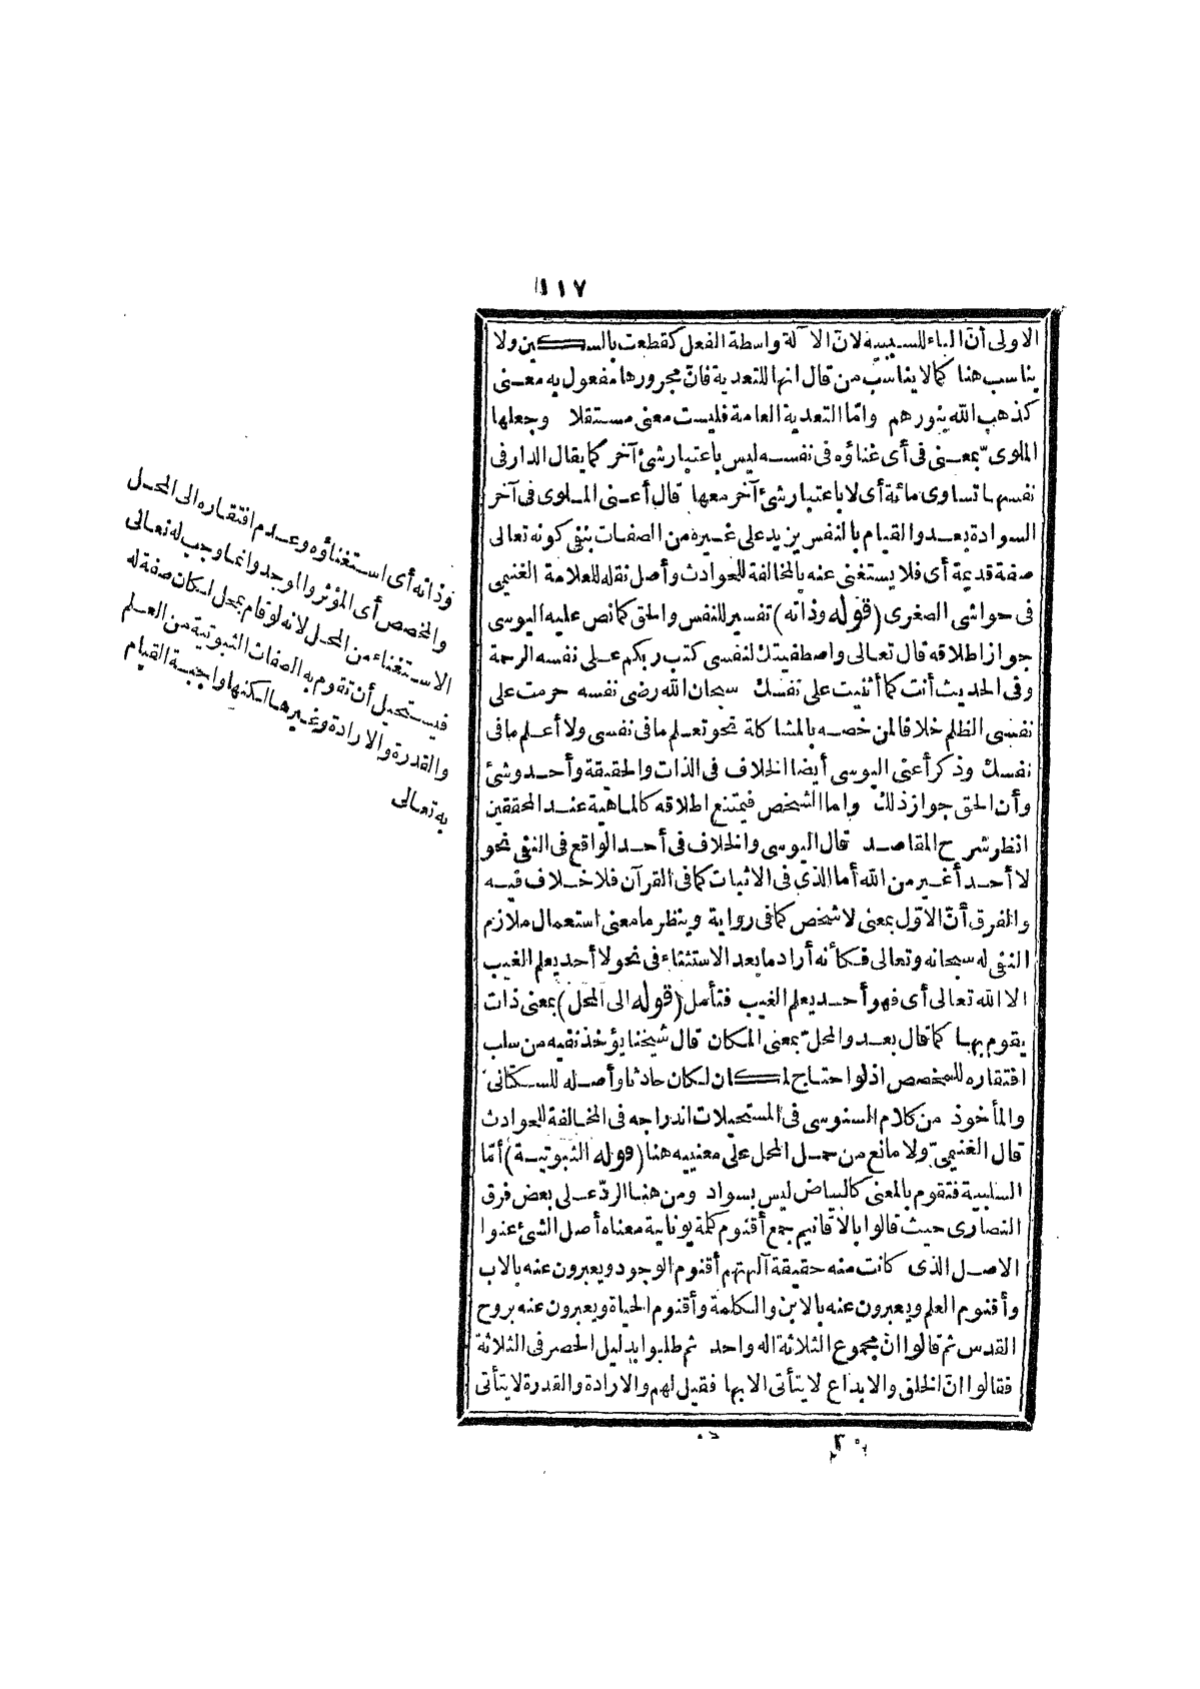 ١١٧
الاولى أنّ الباء للسببية لانّ الآلة واسطة الفعل كقطعت بالسكين ولا
يناسب هنا كمالا يناسب من قال انها للتعدية فانّ مجرورها مفعول به معنى
كذهب الله بنورهم وامّا التعدية العامة فليست معنى مستقلا وجعلها
الملوىّ بمعنى فى أى غناؤه فى نفسه ليس باعتبار شئ آخر كما يقال الدار فى
نفسها تساوى مائة أى لا باعتبار شئ آخر معها قال أعنى الملوى فى آخر
السوادة بعد والقيام بالنفس يزيد على غيره من الصفات بنفى كونه تعالى
صفة قديمة أى فلا يستغنى عنه بالمخالفة للحوادث وأصل نقله للعلامة الغنيمى
فى حواشى الصغرى (قوله وذاته) تفسير للنفس والحق كمانص عليه اليوسى
جواز اطلاقه قال تعالى واصطفيتك لنفسى كتب ربكم على نفسه الرحمة
وفى الحديث أنت كما أثنيت على نفسك سبحان الله رضى نفسه حرمت على
نفسى الظلم خلافا لمن خصه بالمشاكلة نحو تعلم ما فى نفسى ولا أعلم ما فى
نفسك وذكر أعنى اليوسى أيضا الخلاف فى الذات والحقيقة وأحد وشئ
وأن الحق جواز ذلك واما الشخص فيمتنع اطلاقه كالماهية عند المحققين
انظر شرح المقاصد قال اليوسى والخلاف فى أحد الواقع فى النفى نحو
لا أحد أغير من الله أما الذى فى الاثبات كما فى القرآن فلا خلاف فيه
والفرق أنّ الاوّل بمعنى لا شخص كما فى رواية وينظر ما معنى استعمال ملازم
النفى له سبحانه وتعالى فكأنه أراد ما بعد الاستثناء فى نحو لا أحد يعلم الغيب
الا الله تعالى أى فهو أحد يعلم الغيب فتأمل (قوله الى المحل) بمعنى ذات
يقوم بها كما قال بعد والمحلّ بمعنى المكان قال شيخنا يؤخذ نفيه من سلب
افتقاره للمخصص اذ لو احتاج لمكان لكان حادثا وأصله للسكتانى
والمأخوذ من كلام السنوسى فى المستحيلات اندراجه فى المخالفة للحوادث
قال الغنيمىّ ولا مانع من حمل المحل على معنييه هنا (قوله الثبوتية) أمّا
السلبية فتقوم بالمعنى كالبياض ليس بسواد ومن هنا الردّ على بعض فرق
النصارى حيث قالوا بالاقانيم جمع أقنوم كلمة يونانية معناه أصل الشئ عنوا
الاصل الذى كانت منه حقيقة آلهتهم أقنوم الوجود ويعبرون عنه بالاب
وأقنوم العلم ويعبرون عنه بالابن والكلمة وأقنوم الحياة ويعبرون عنه بروح
القدس ثم قالوا انّ مجموع الثلاثة اله واحد ثم طلبوا بدليل الحصر فى الثلاثة
فقالوا انّ الخلق والابداع لا يتأتى الا بها فقيل لهم والارادة والقدرة لا يتأتى
وذاته أى استغناؤه وعدم افتقاره الى المحل
والمخصص أى المؤثر والموجد وانما وجب له تعالى
الاستغناء من المحل لانه لو قام بمحل لكان صفة له
فيستحيل أن تقوم به الصفات الثبوتية من العلم
والقدرة والارادة وغيرها لكنها واجبة القيام
به تعالى